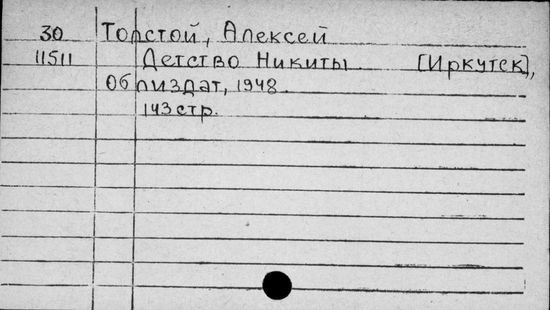 30 Толстой, Алексей
11511 Детство Никиты [Иркутск],
Облиздат, 1948.
143 стр.